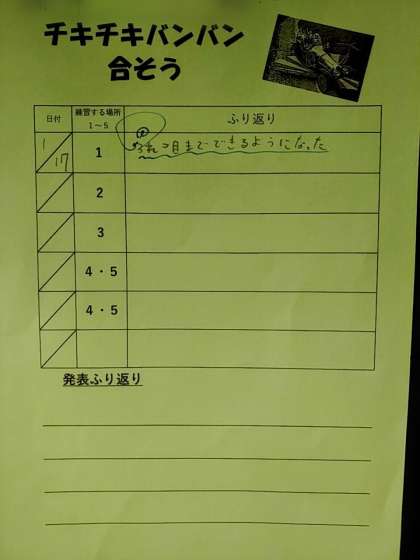 チキチキバンバン
合そう
日付 練習する場所 1～5 ふり返り
1/17 1 3れつ目までできるようになった
2
3
4・5
4・5
発表ふり返り